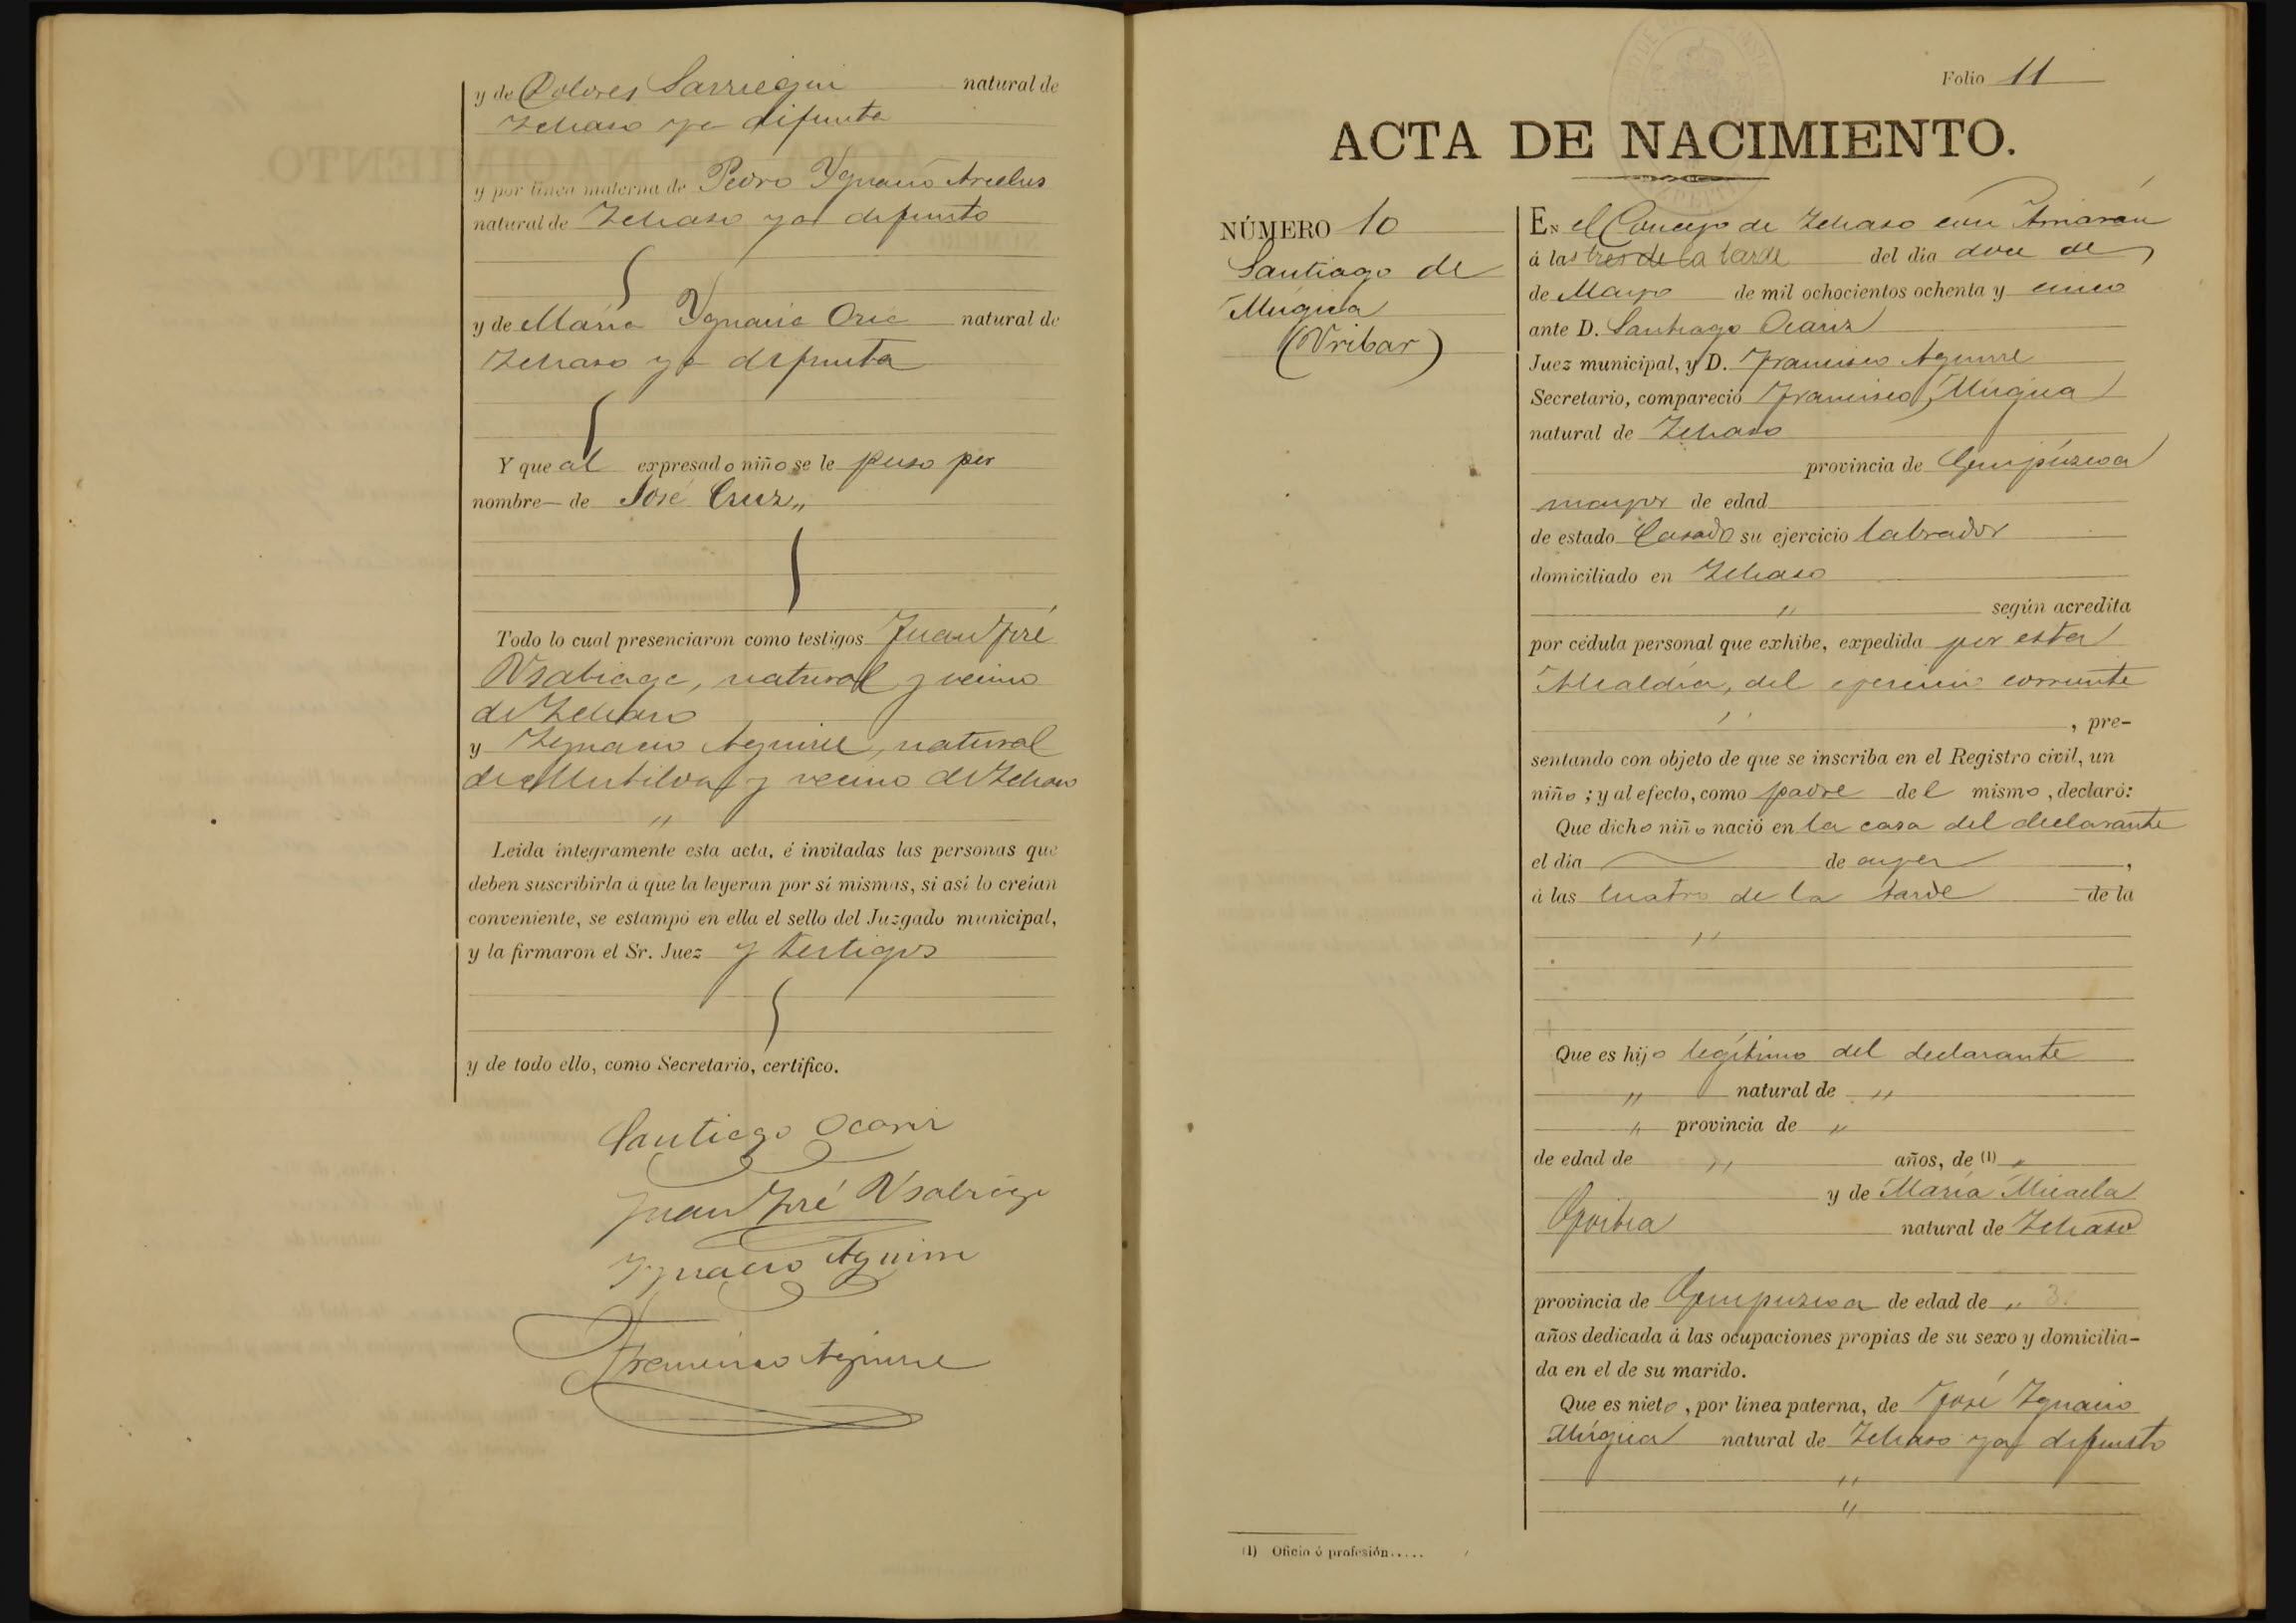 y de Dolores Sarriegui natural de
Ichaso ya difunta
y por línea materna de Pedro Ygnacio Arcelus
natural de Ichaso ya difunto
y de María Ygnacia Oria natural de
Ichaso ya difunta
Y que al expresado niño se le puso por
nombre de José Cruz„
Todo lo cual presenciaron como testigos Juan José
Usabiaga, natural y vecino
de Ichaso
y Ignacio Aguirre, natural
de Mutiloa y vecino de Ichaso
"
Leida íntegramente esta acta, é invitadas las personas que
deben suscribirla á que la leyeran por sí mismas, si así lo creían
conveniente, se estampó en ella el sello del Juzgado municipal,
y la firmaron el Sr. Juez y testigos
y de todo ello, como Secretario, certifico.
Santiago Ocariz
Juan José Usabiaga
Ygnacio Aguirre
Francisco Aguirre
Folio 11
ACTA DE NACIMIENTO.
NÚMERO 10
Santiago de
Múgica
(Uribar)
EN el Concejo de Ichaso con Arriarán
á las tres de la tarde del dia doce de
de Mayo de mil ochocientos ochenta y cinco
ante D. Santiago Ocariz
Juez municipal, y D. Francisco Aguirre
Secretario, compareció Francisco Múgica
natural de Ichaso
provincia de Guipúzcoa
mayor de edad
de estado Casado su ejercicio labrador
domiciliado en Ichaso
" según acredita
por cédula personal que exhibe, expedida por esta
Alcaldía, del ejercicio corriente
" , pre-
sentando con objeto de que se inscriba en el Registro civil, un
niño; y al efecto, como padre del mismo, declaró:
Que dicho niño nació en la casa del declarante
el dia de ayer ,
á las cuatro de la tarde de la
"
Que es hijo legítimo del declarante
" natural de "
" provincia de "
de edad de " años, de (1) "
y de María Micaela
Goitia natural de Ichaso
provincia de Guipuzcoa de edad de " 3.
años dedicada á las ocupaciones propias de su sexo y domicilia-
da en el de su marido.
Que es nieto, por línea paterna, de José Ignacio
Múgica natural de Ichaso ya difunto
"
"
(1) Oficio ó profesión.....